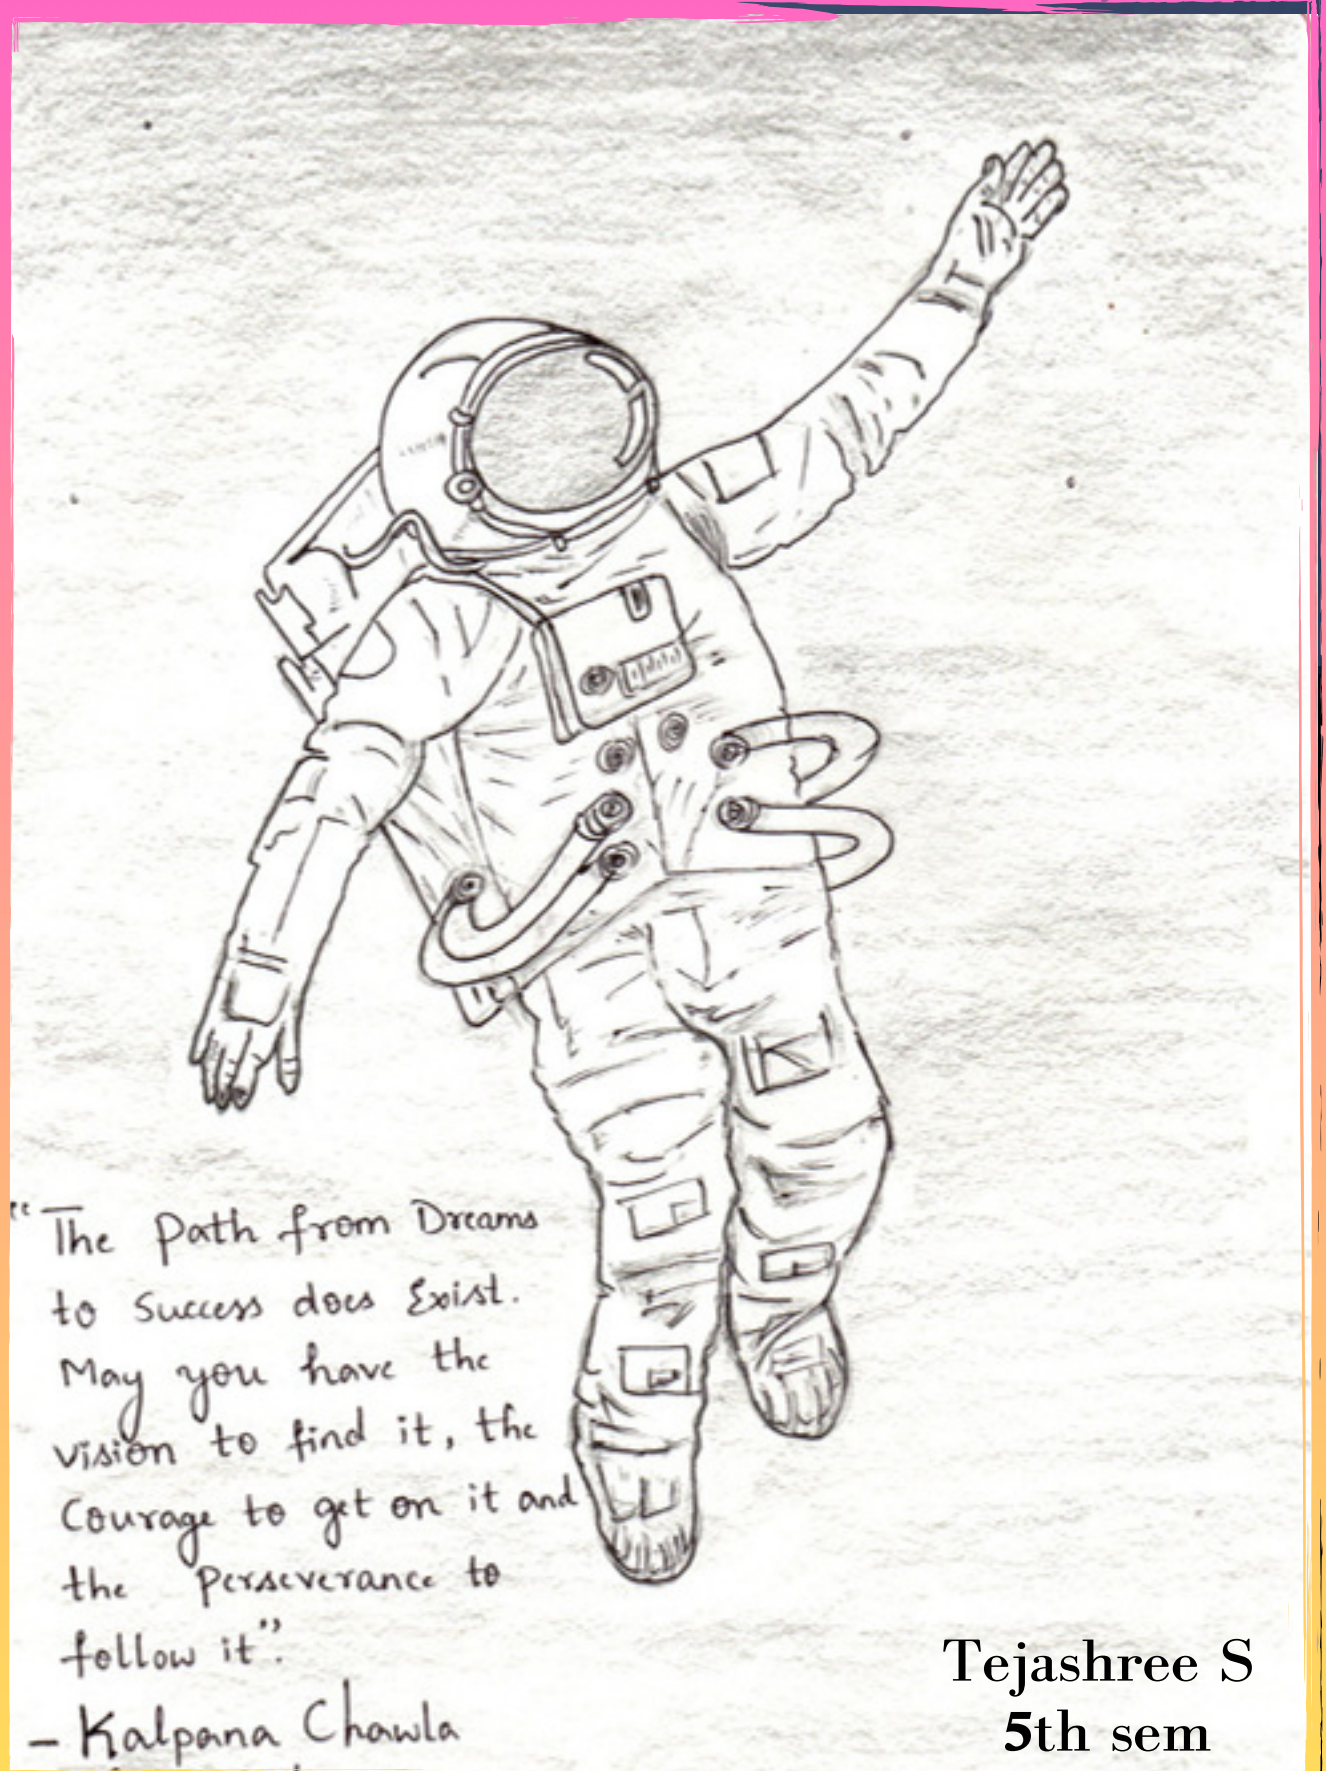 "The Path from Dreams
to Success does Exist.
May you have the
vision to find it, the
Courage to get on it and
the Perseverance to
follow it".
- Kalpana Chawla
Tejashree S
5th sem